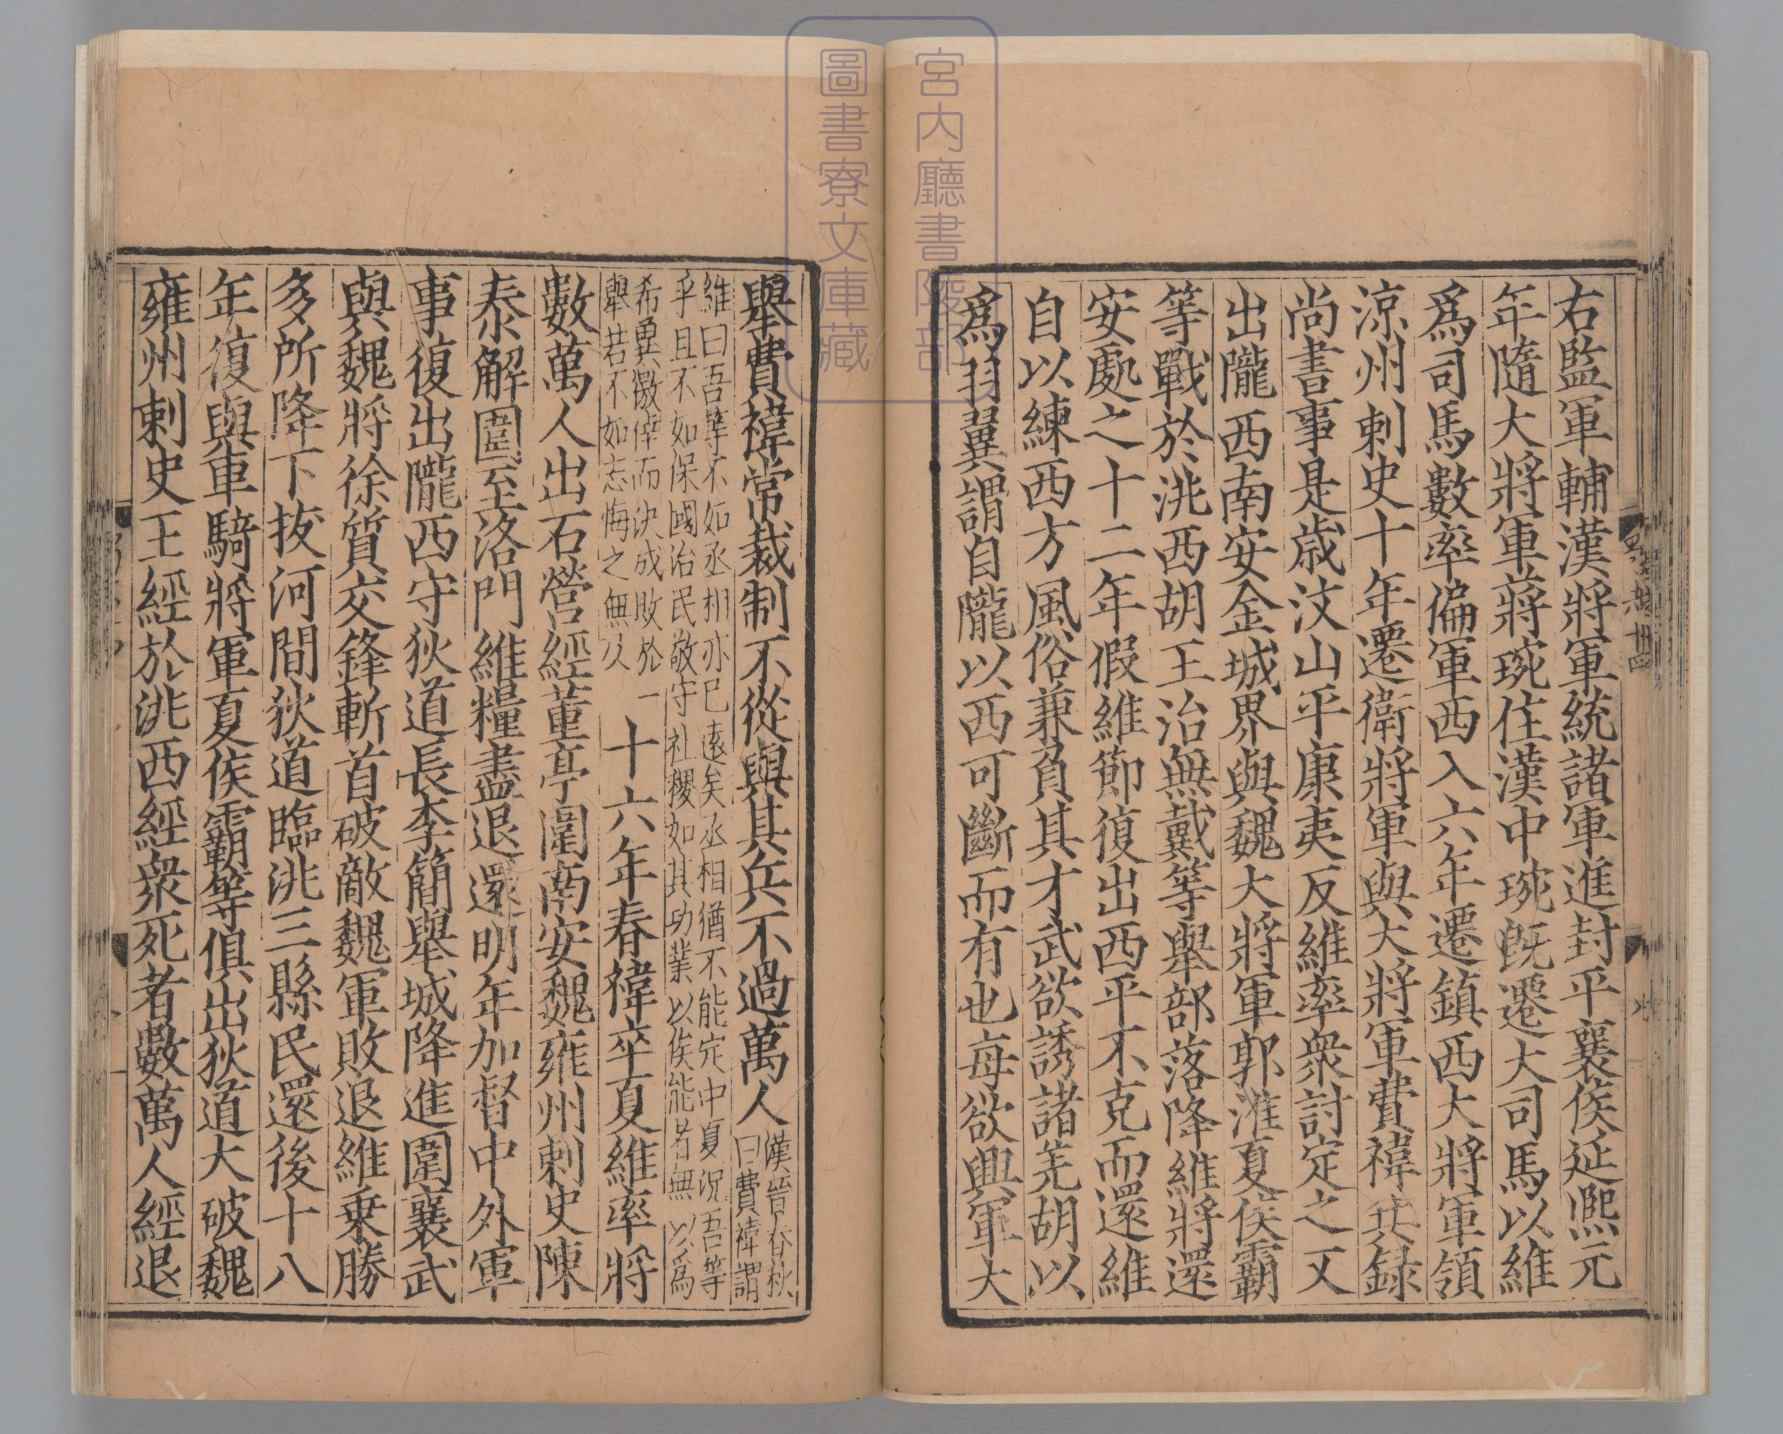 右監軍輔漢將軍統諸軍進封平襄侯延熈元
年隨大將軍蔣琬住漢中琬旣遷大司馬以維
爲司馬數率偏軍西入六年遷鎮西大將軍領
涼州刺史十年遷衞將軍與大將軍費禕共録
尚書事是歳汶山平康夷反維率衆討定之又
出隴西南安金城界與魏大將軍郭淮夏侯霸
等戰於洮西胡王治無戴等舉部落降維將還
安處之十二年假維節復出西平不克而還維
自以練西方風俗兼負其才武欲誘諸羌胡以
爲羽翼謂自隴以西可斷而有也每欲興軍大
舉費禕常裁制不從與其兵不過萬人
漢晉春秋
曰費禕謂
維曰吾等不如丞相亦已遠矣丞相猶不能定中夏況吾等
乎且不如保國治民敬守社稷如其功業以俟能者無以爲
希兾徼倖而決成敗於一
舉若不如志悔之無及
十六年春禕卒夏維率將
數萬人出石營經董亭圍南安魏雍州刺史陳
泰解圍至洛門維糧盡退還明年加督中外軍
事復出隴西守狄道長李簡舉城降進圍襄武
與魏將徐質交鋒斬首破敵魏軍敗退維乗勝
多所降下拔河間狄道臨洮三縣民還後十八
年復與車騎將軍夏侯霸等俱出狄道大破魏
雍州刺史王經於洮西經衆死者數萬人經退
宮内廳書陵部
圖書寮文庫藏